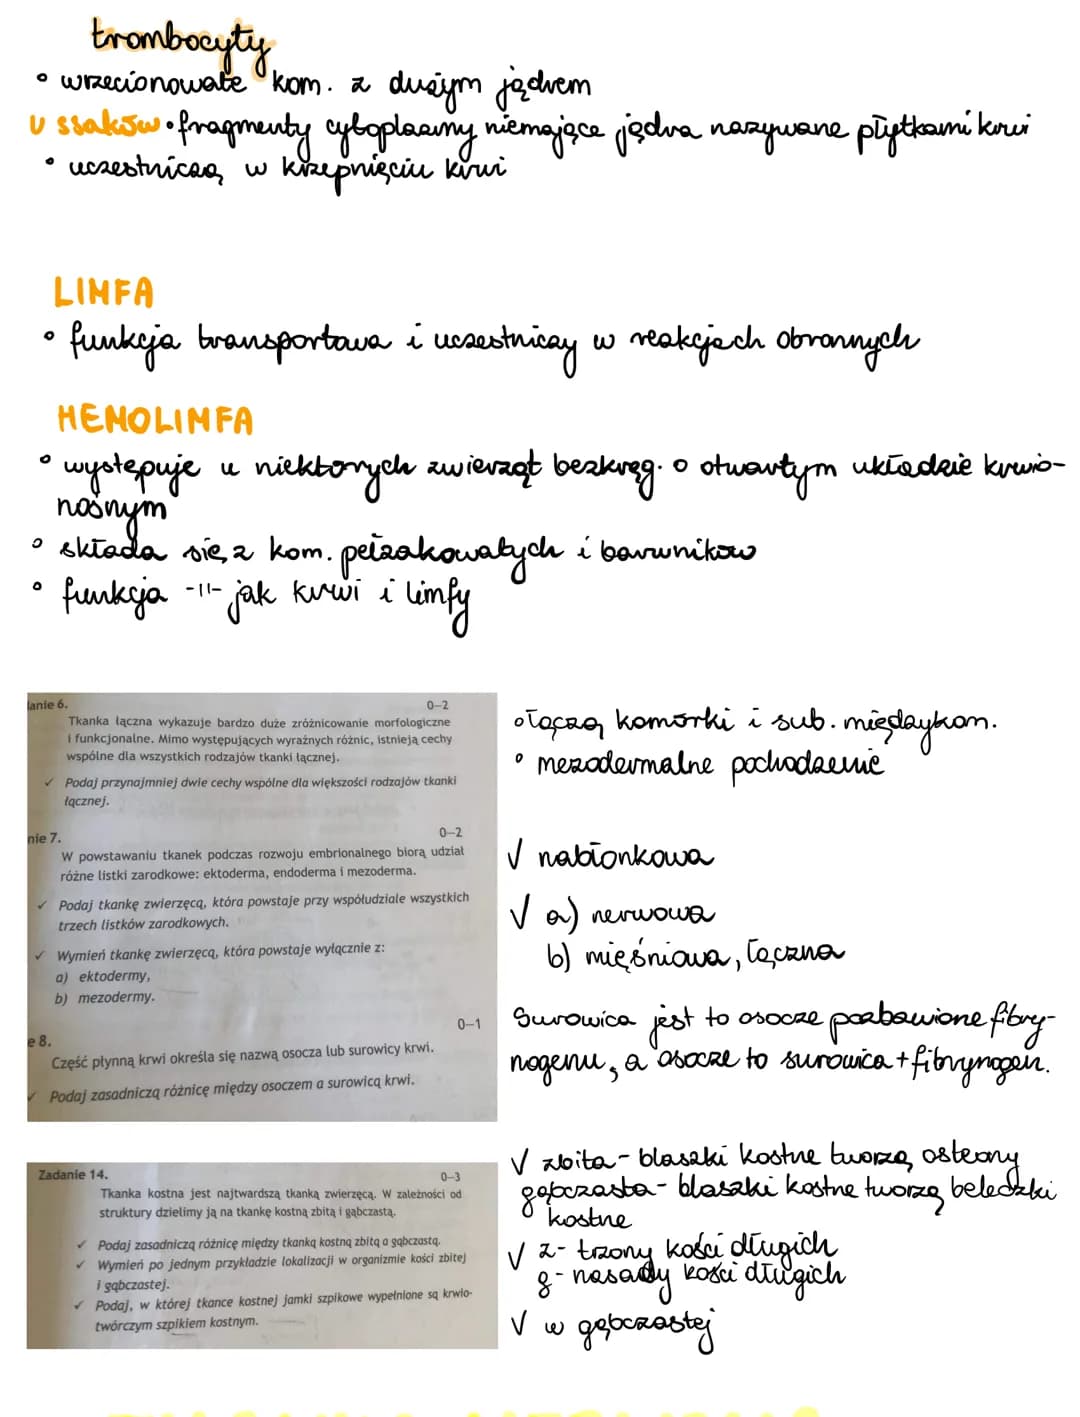 trombocyty
• wrzecionowate kom. z dużym jądrem
U ssaków • fragmenty cytoplazmy niemające jądra nazywane płytkami krwi
• uczestniczą w krzepnięciu krwi
LIMFA
• funkcja transportowa i uczestniczy w reakcjach obronnych
HEMOLIMFA
• występuje u niektorych zwierząt bezkręg. o otwartym układzie krwio-
nośnym
• składa się z kom. pełzakowatych i barwników
• funkcja -11- jak krwi i limfy
anie 6.
0–2
Tkanka łączna wykazuje bardzo duże zróżnicowanie morfologiczne
i funkcjonalne. Mimo występujących wyraźnych różnic, istnieją cechy
wspólne dla wszystkich rodzajów tkanki łącznej.
✓ Podaj przynajmniej dwie cechy wspólne dla większości rodzajów tkanki
łącznej.
• łączą komórki i sub. międzykom.
• mezodermalne pochodzenie
nie 7.
0–2
W powstawaniu tkanek podczas rozwoju embrionalnego biorą udział
różne listki zarodkowe: ektoderma, endoderma i mezoderma.
✓ Podaj tkankę zwierzęcą, która powstaje przy współudziale wszystkich
trzech listków zarodkowych.
✓ Wymień tkankę zwierzęcą, która powstaje wyłącznie z:
a) ektodermy,
b) mezodermy.
√ nabłonkowa
√ a) nerwowa
b) mięśniowa, łączna
e 8.
0–1
Część płynną krwi określa się nazwą osocza lub surowicy krwi.
✓ Podaj zasadniczą różnicę między osoczem a surowicą krwi.
Surowica jest to osocze pozbawione fibry-
nogenu, a osocze to surowica + fibrynogen.
Zadanie 14.
0–3
Tkanka kostna jest najtwardszą tkanką zwierzęcą. W zależności od
struktury dzielimy ją na tkankę kostną zbitą i gąbczastą.
✓ Podaj zasadniczą różnicę między tkanką kostną zbitą a gąbczastą.
✓ Wymień po jednym przykładzie lokalizacji w organizmie kości zbitej
i gąbczastej.
✓ Podaj, w której tkance kostnej jamki szpikowe wypełnione są krwio-
twórczym szpikiem kostnym.
√ zbita - blaszki kostne tworzą osteony
gąbczasta - blaszki kostne tworzą beleczki
kostne
√ z - trzony kości długich
g - nasady kości długich
√ w gąbczastej